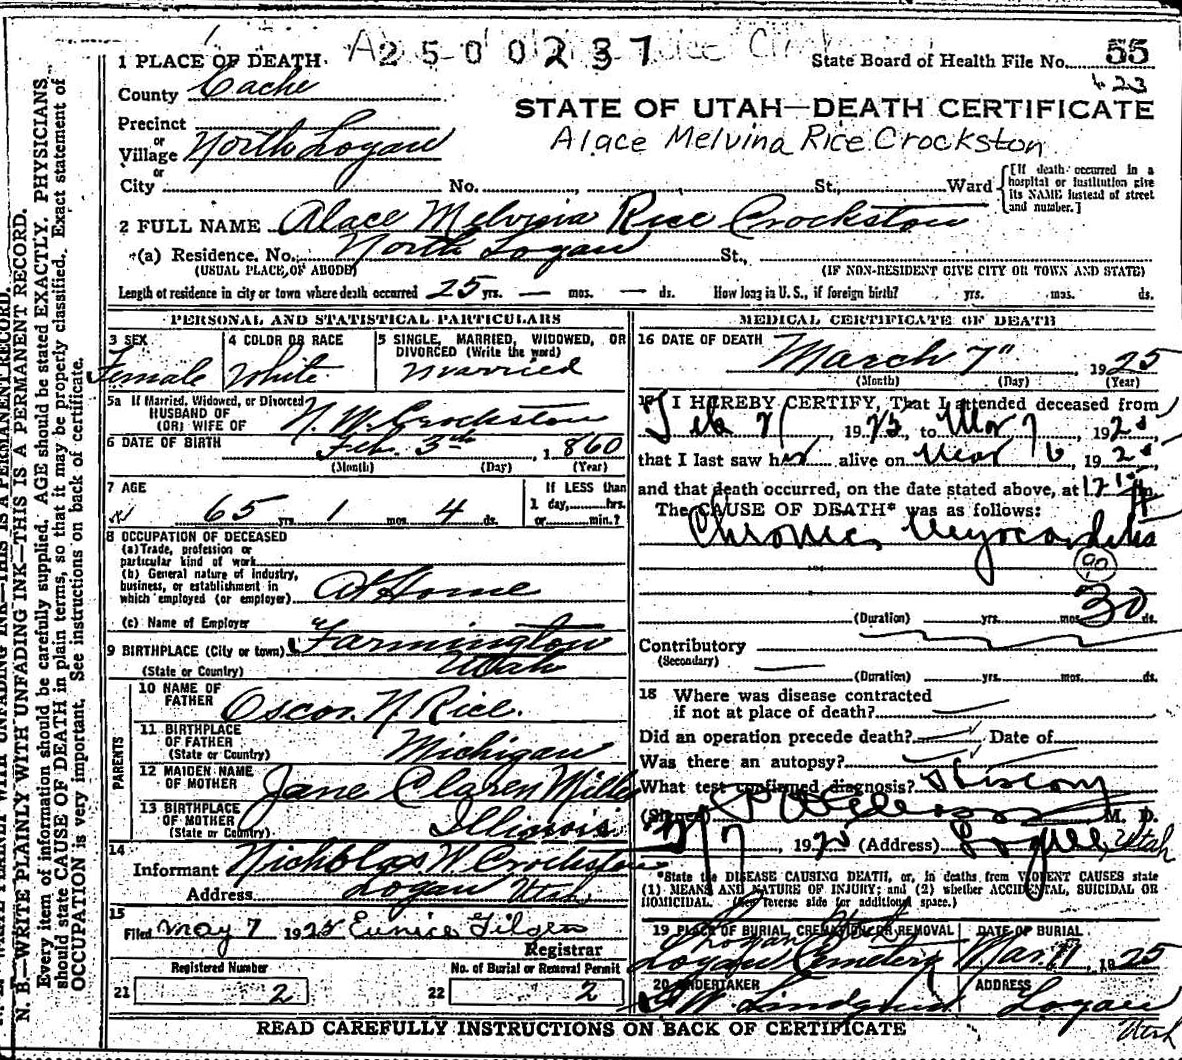 2500237
1 PLACE OF DEATH
State Board of Health File No. 55
County Cache
STATE OF UTAH—DEATH CERTIFICATE
Precinct
or
Village North Logan
Alace Melvina Rice Crockston
or
City No. , , St., Ward
[If death occurred in a
hospital or institution give
its NAME instead of street
and number.]
2 FULL NAME Alace Melvina Rice Crockston
(a) Residence. No. North Logan St.,
(USUAL PLACE OF ABODE) (IF NON-RESIDENT GIVE CITY OR TOWN AND STATE)
Length of residence in city or town where death occurred 25 yrs. — mos. — ds. How long in U. S., if foreign birth? yrs. mos. ds.
PERSONAL AND STATISTICAL PARTICULARS
3 SEX
Female
4 COLOR OR RACE
White
5 SINGLE, MARRIED, WIDOWED, OR
DIVORCED (Write the word)
Married
5a If Married, Widowed, or Divorced
HUSBAND OF
(OR) WIFE OF N. W. Crockston
6 DATE OF BIRTH Feb. 3rd, 1860
(Month) (Day) (Year)
7 AGE
65 yrs. 1 mos. 4 ds.
If LESS than
1 day, hrs.
or min.?
8 OCCUPATION OF DECEASED
(a) Trade, profession or
particular kind of work
(b) General nature of industry,
business, or establishment in
which employed (or employer) At Home
(c) Name of Employer
9 BIRTHPLACE (City or town) Farmington
(State or Country) Utah
PARENTS
10 NAME OF
FATHER Oscar N Rice.
11 BIRTHPLACE
OF FATHER
(State or Country) Michigan
12 MAIDEN NAME
OF MOTHER Jane Miller
13 BIRTHPLACE
OF MOTHER
(State or Country) Illinois
14
Informant Nichblas W Crockston
Address Logan Utah
15
Filed May 7 1925 Eunice
Registrar
Registered Number
21 2
No. of Burial or Removal Permit
22 2
MEDICAL CERTIFICATE OF DEATH
16 DATE OF DEATH
March 7" 1925
(Month) (Day) (Year)
17 I HEREBY CERTIFY, That I attended deceased from
Feb 1925, to Mar 7, 1925,
that I last saw her alive on Mar 6, 1925,
and that death occurred, on the date stated above, at
The CAUSE OF DEATH* was as follows:
Chronic Myocarditis
90
(Duration) yrs. mos. 30 ds.
Contributory
(Secondary)
(Duration) yrs. mos. ds.
18 Where was disease contracted
if not at place of death?
Did an operation precede death? Date of
Was there an autopsy?
What test confirmed diagnosis? History
(Signed) M. D.
1925 (Address) Logan, Utah
*State the DISEASE CAUSING DEATH, or, in deaths from VIOLENT CAUSES state
(1) MEANS AND NATURE OF INJURY; and (2) whether ACCIDENTAL, SUICIDAL OR
HOMICIDAL. (See reverse side for additional space.)
19 PLACE OF BURIAL, CREMATION OR REMOVAL
Logan Cemetery
DATE OF BURIAL
Mar. 11, 1925
20 UNDERTAKER
ADDRESS
Logan
Utah
READ CAREFULLY INSTRUCTIONS ON BACK OF CERTIFICATE
N. B.—WRITE PLAINLY WITH UNFADING INK—THIS IS A PERMANENT RECORD.
Every item of information should be carefully supplied. AGE should be stated EXACTLY. PHYSICIANS
should state CAUSE OF DEATH in plain terms, so that it may be properly classified. Exact statement of
OCCUPATION is very important. See instructions on back of certificate.